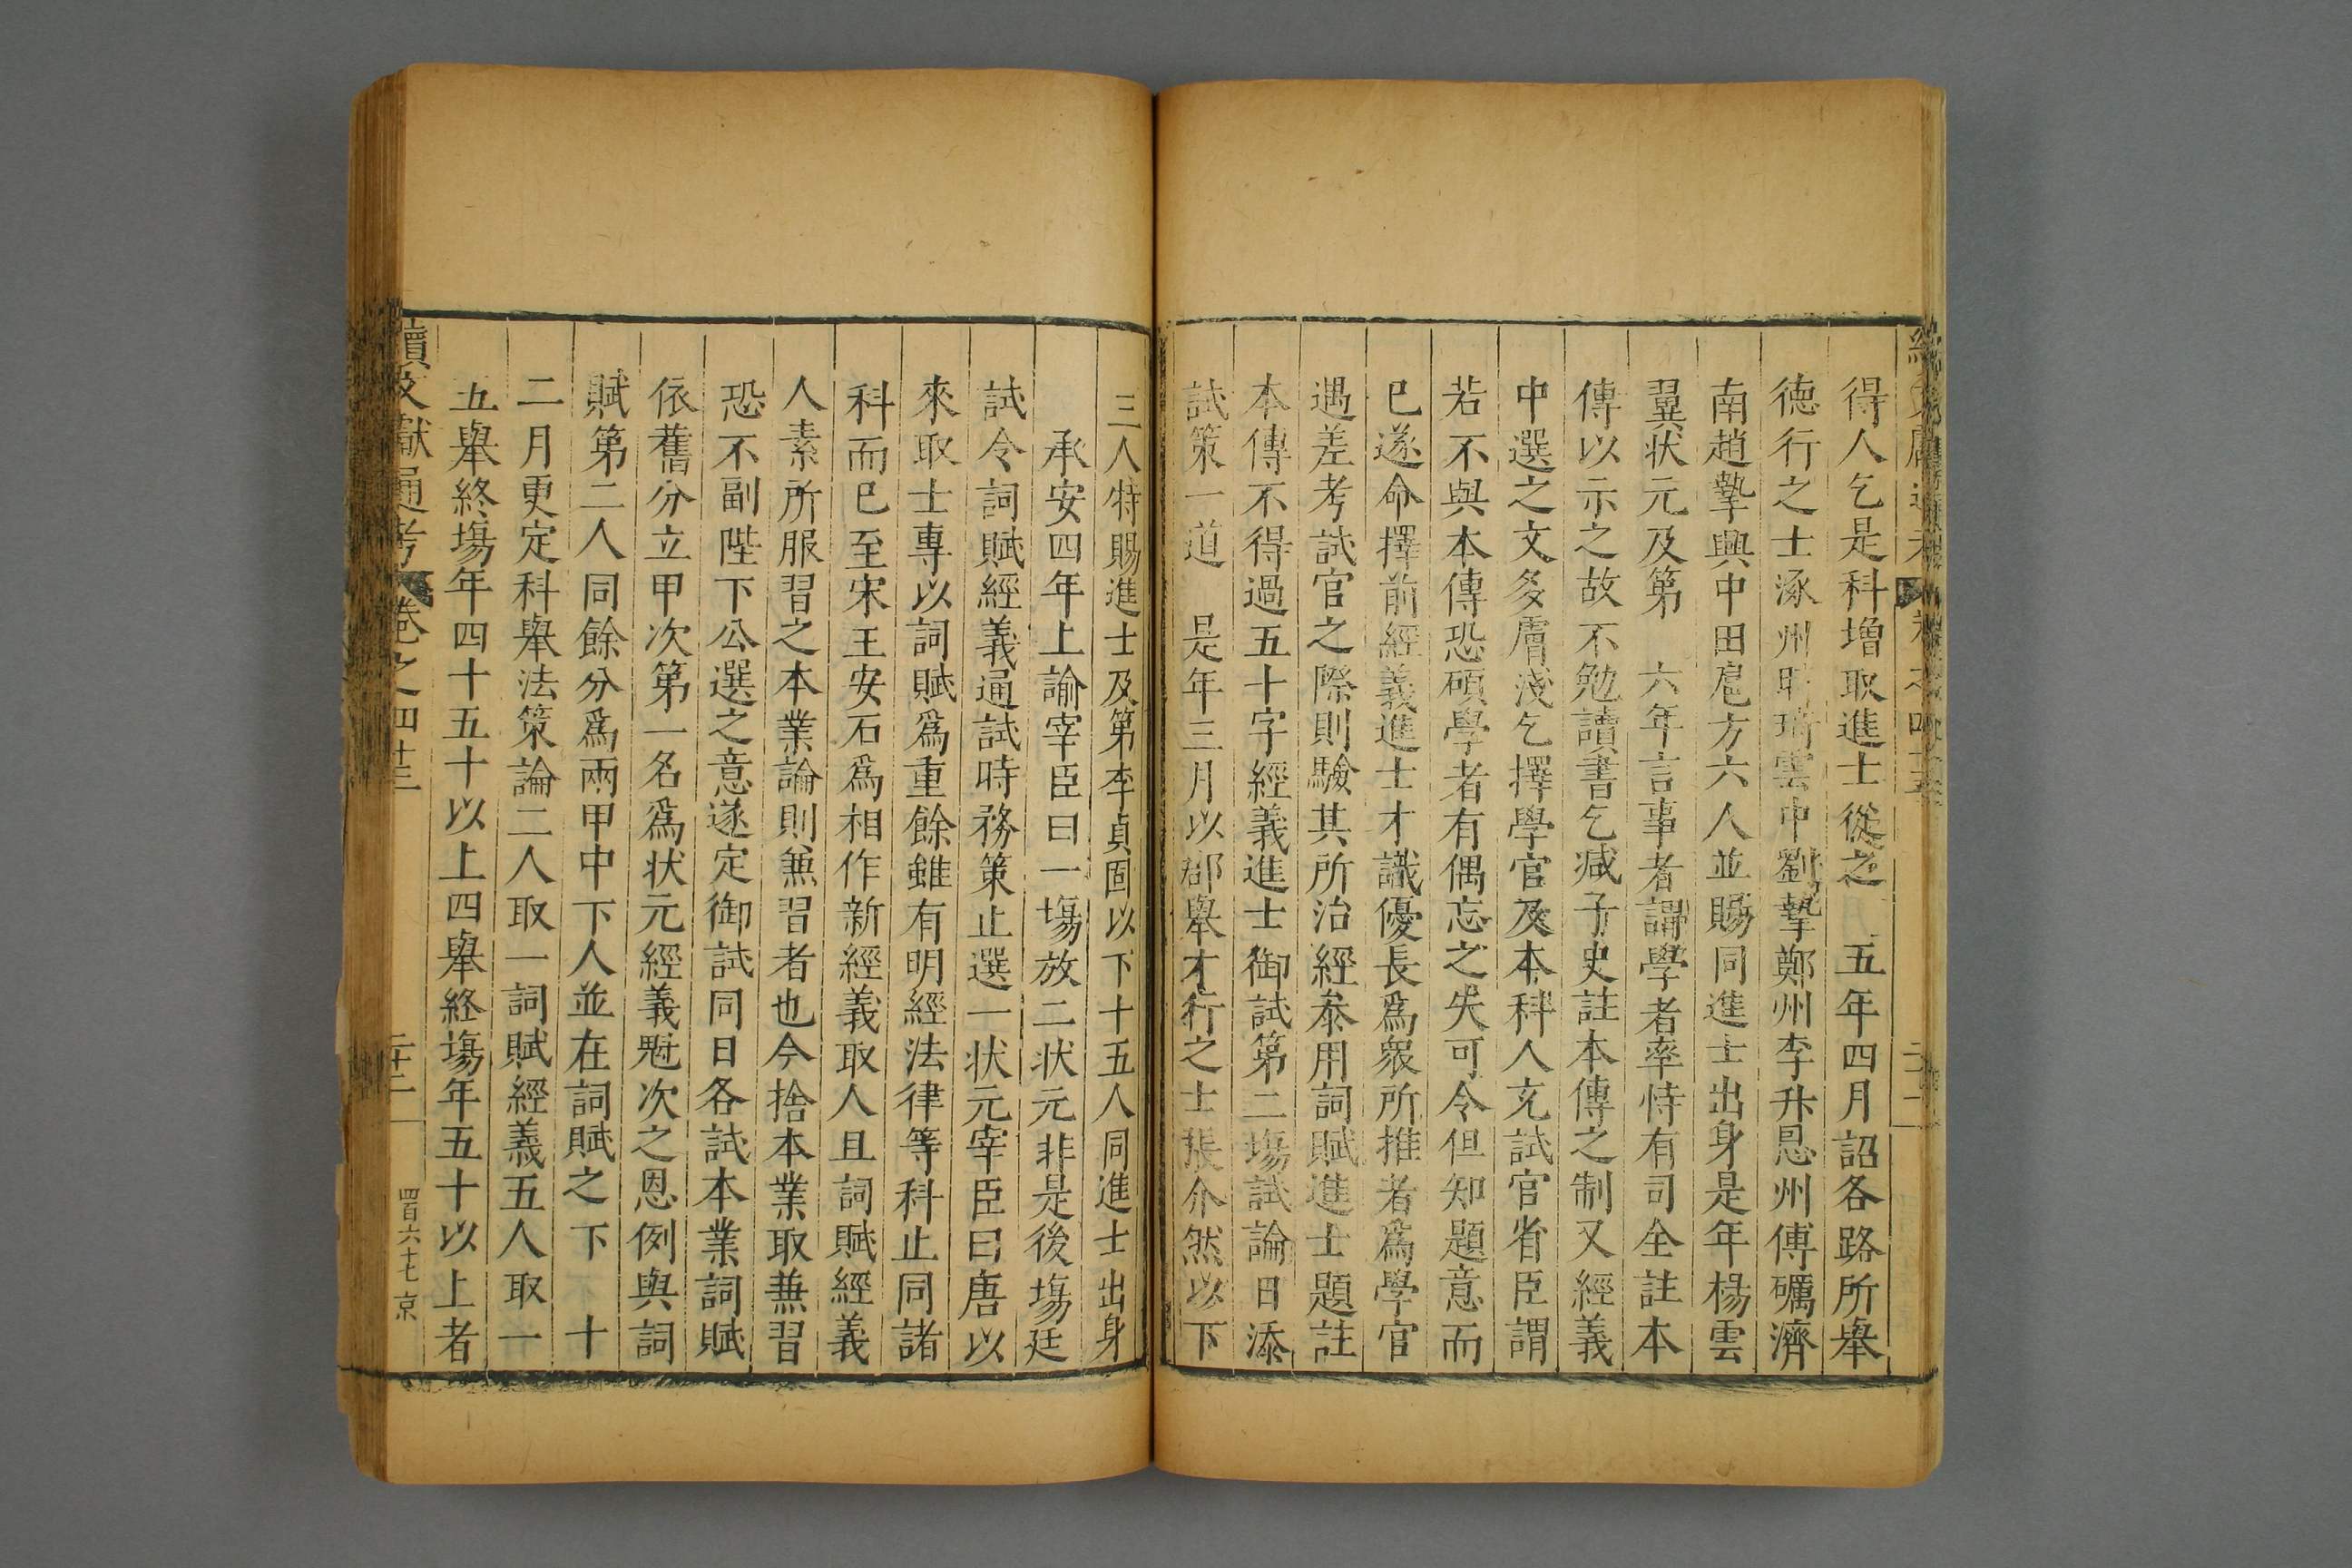 得人乞是科增取進士從之　五年四月詔各路所舉
德行之士涿州時琦雲中劉摯鄭州李升恩州傅礪濟
南趙摯興中田扈方六人並賜同進士出身是年楊雲
翼状元及第　六年言事者謂學者率恃有司全註本
傳以示之故不勉讀書乞减子史註本傳之制又經義
中選之文多膚淺乞擇學官及本科人充試官省臣謂
若不與本傳恐碩學者有偶忘之失可令但知題意而
已遂命擇前經義進士才識優長爲衆所推者爲學官
遇差考試官之際則驗其所治經泰用詞賦進士題註
本傳不得過五十字經義進士御試第二塲試論日添
試策一道　是年三月以郡舉才行之士張介然以下
三人特賜進士及第李貞固以下十五人同進士出身
承安四年上諭宰臣曰一塲放二状元非是後塲廷
試令詞賦經義通試時務策止選一状元宰臣曰唐以
來取士專以詞賦爲重餘雖有明經法律等科止同諸
科而已至宋王安石爲相作新經義取人且詞賦經義
人素所服習之本業論則兼習者也今捨本業取兼習
恐不副陛下公選之意遂定御試同日各試本業詞賦
依舊分立甲次第一名爲状元經義魁次之恩例與詞
賦第二人同餘分爲兩甲中下人並在詞賦之下　十
二月更定科舉法策論二人取一詞賦經義五人取一
五舉終塲年四十五十以上四舉終塲年五十以上者
續文獻通考　卷之四十三　二十二　四百六十七　京